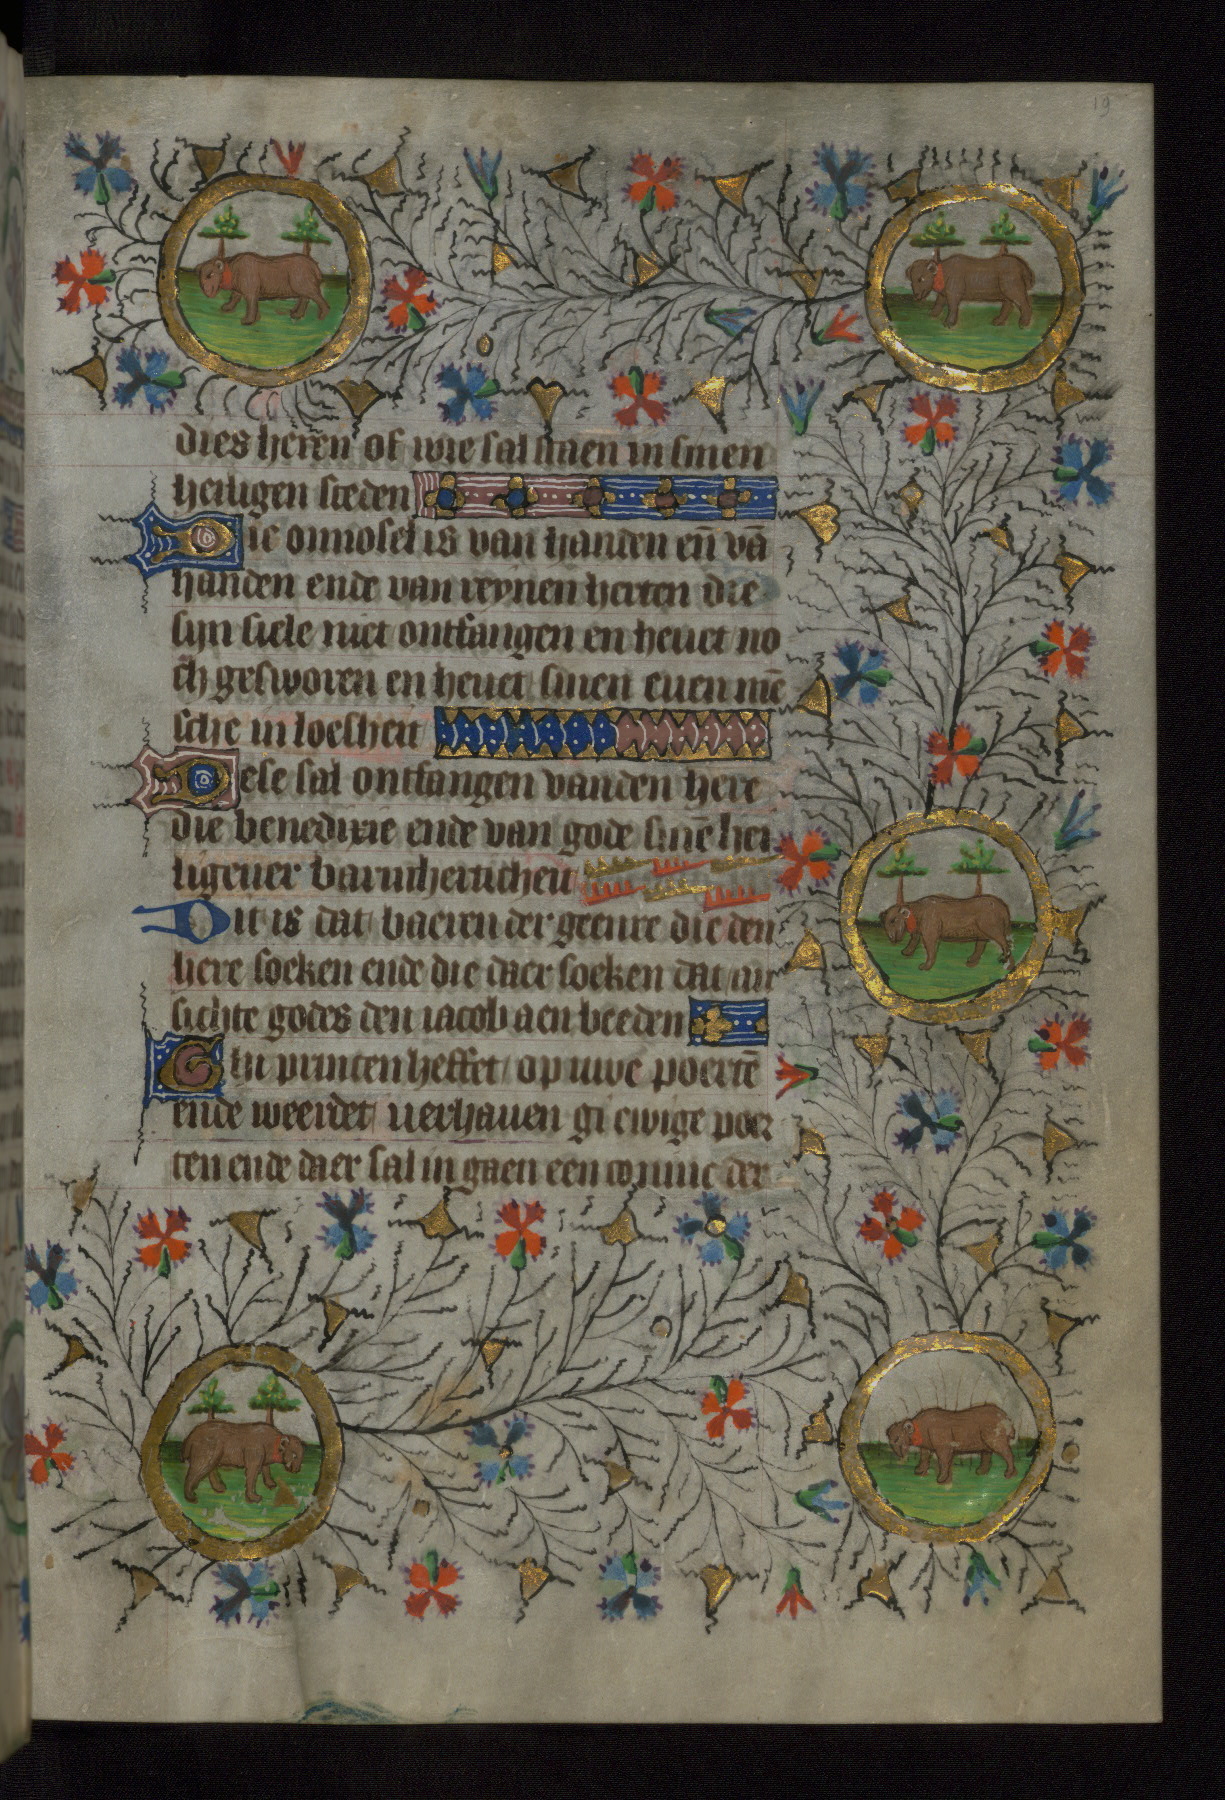 19
dies heren of wie sal staen in sinen
heiligen steden
Die onnosel is van handen en̄ vā
handen ende van reynen herten die
sijn siele niet ontfangen en heuet no
ch gesworen en heuet sinen euen mē
sche in loesheit
Dese sal ontfangen vanden here
die benedixie ende van gode sinē hei
ligeuer barmhertichen
Dit is dat baeren der geenre die den
here soeken ende die daer soeken dat an
sichte godes den iacob aen beeden
Ghi princen heffet op uwe poertē
ende weerdet verhauen gi ewige poer
ten ende daer sal in gaen een coninc der